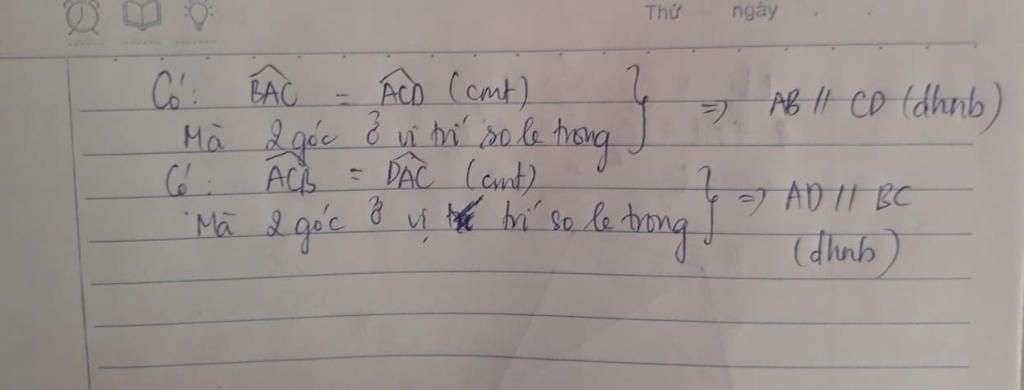 Thứ ngày
Có: \widehat{BAC} = \widehat{ACD} (cmt) } => AB // CD (dhnb)
Mà 2 góc ở vị trí so le trong
Có: \widehat{ACB} = \widehat{DAC} (cmt) } => AD // BC
Mà 2 góc ở vị trí so le trong
(dhnb)